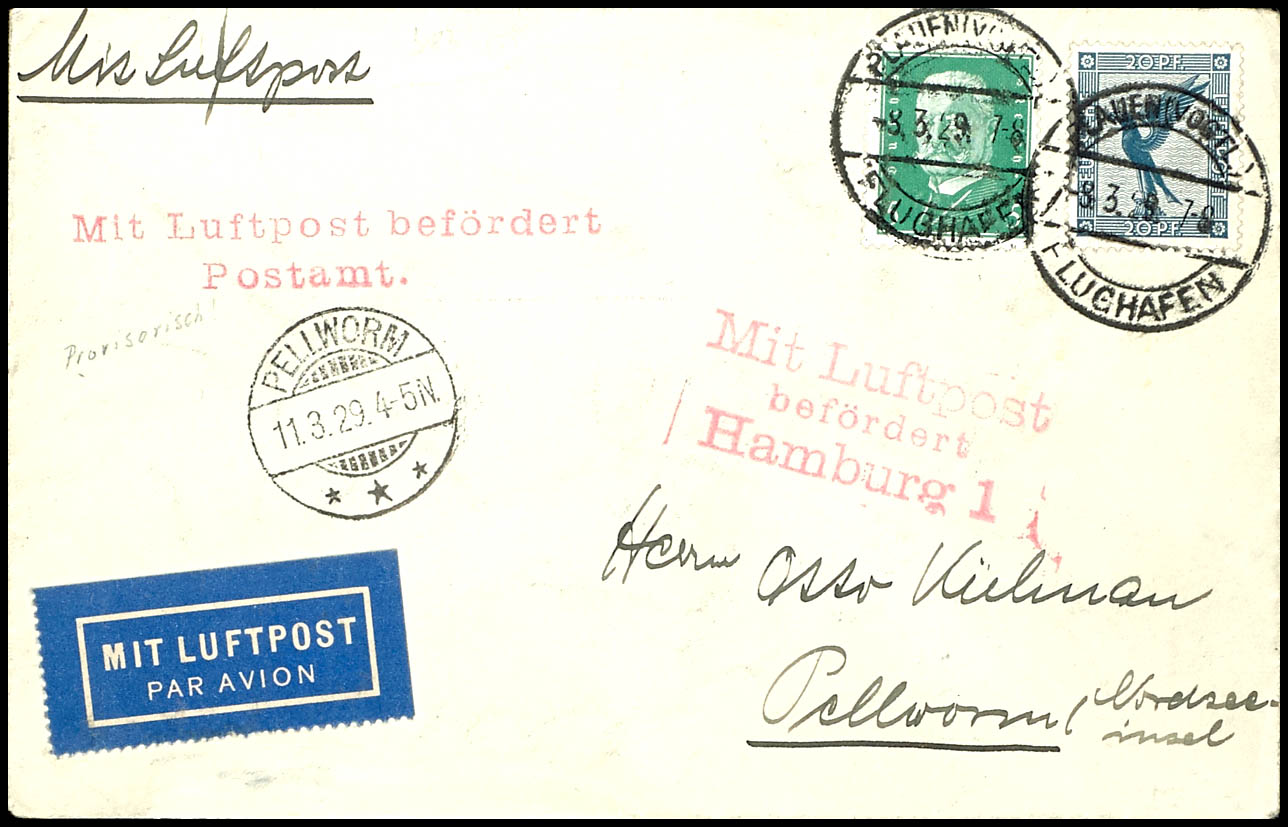 Mit Luftpost
PLAUEN (VOGTL)
-8.3.29. 7-8
FLUGHAFEN
20 PF.
PLAUEN (VOGTL)
8.3.29. 7-8
20 PF.
FLUGHAFEN
Mit Luftpost befördert
Postamt.
Provisorisch!
PELLWORM
11.3.29.4-5N.
Mit Luftpost
befördert
Hamburg 1
Herrn Otto Kielman
Pellworm (Nordsee-
insel
MIT LUFTPOST
PAR AVION